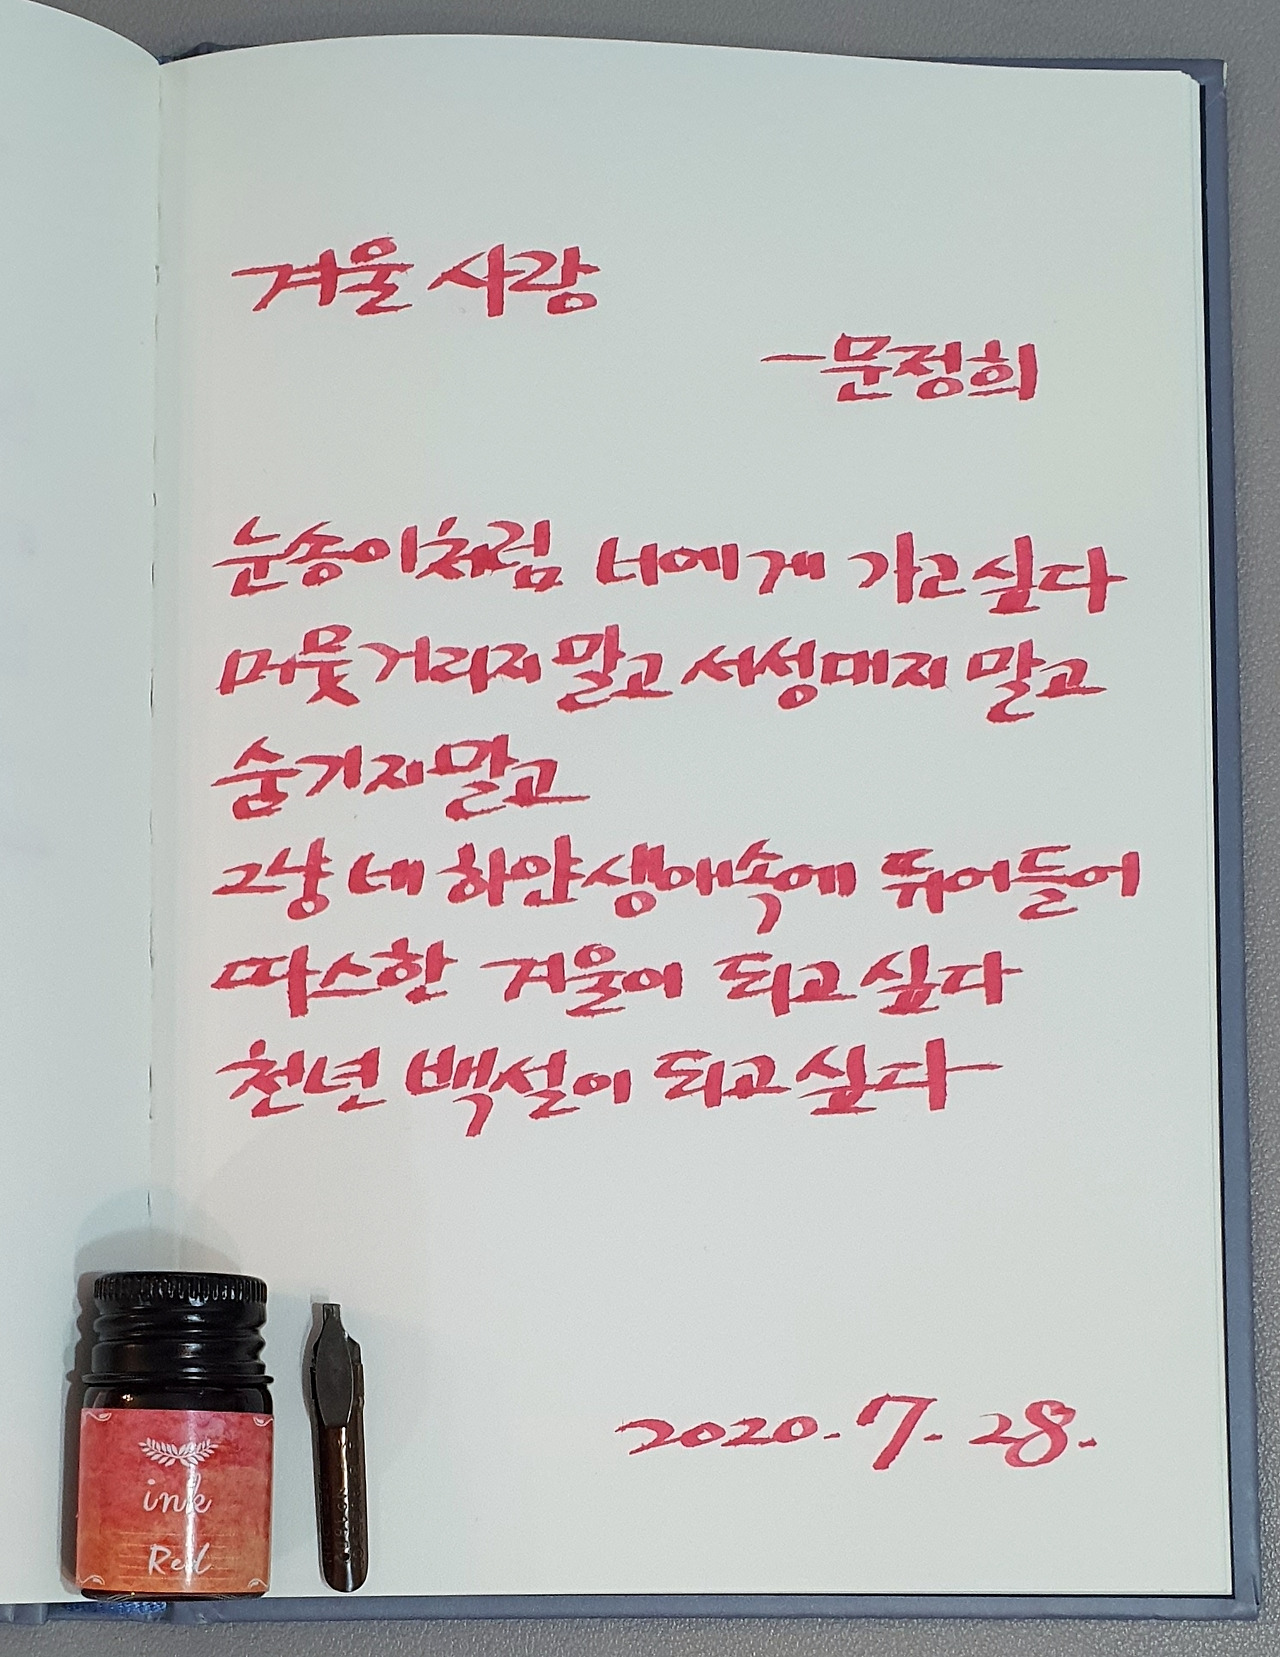 겨울 사랑
-문정희
눈송이처럼 너에게 가고싶다
머뭇거리지 말고 서성대지 말고
숨기지 말고
그냥 네 하얀 생애속에 뛰어들어
따스한 겨울이 되고싶다
천년 백설이 되고싶다
2020. 7. 28.
ink
Red